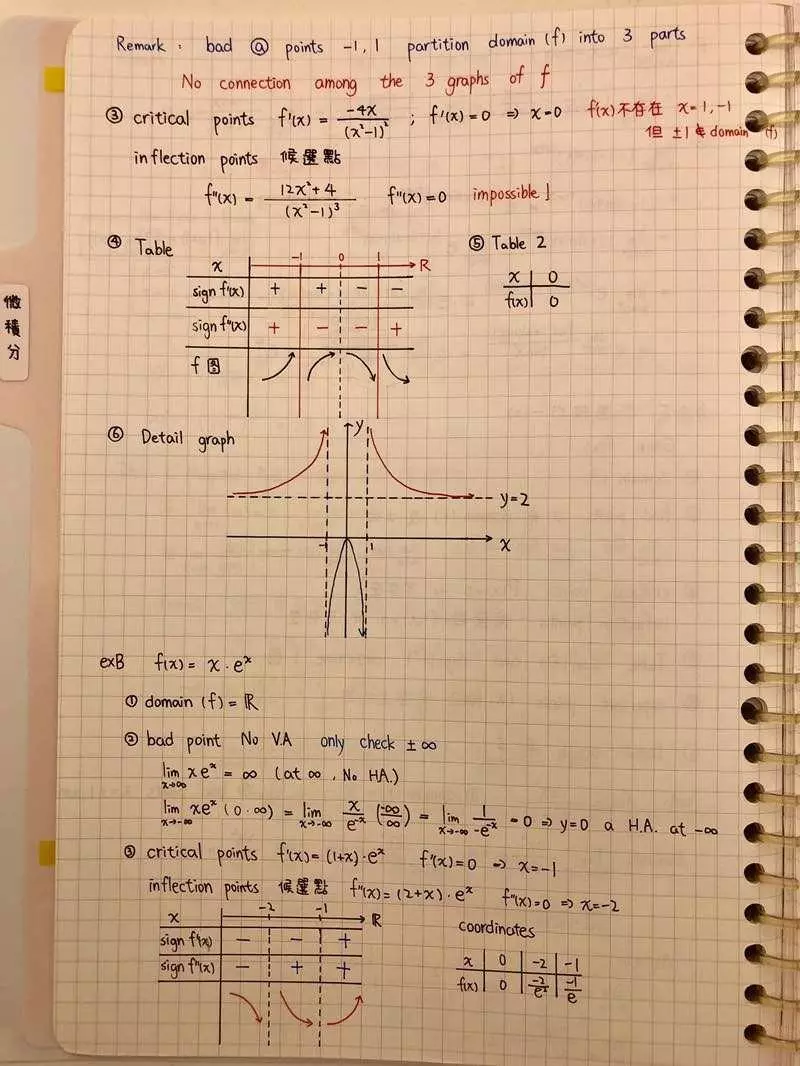 Remark : bad @ points -1, 1 partition domain (f) into 3 parts
No connection among the 3 graphs of f
③ critical points f'(x) = -4x/(x²-1)² ; f'(x)=0 ⇒ x=0 f(x)不存在 x=1,-1
但 ±1 ∉ domain (f)
inflection points 候選點
f''(x) = 12x²+4/(x²-1)³ f''(x)=0 impossible!
④ Table
⑤ Table 2
x -1 0 1 R
sign f'(x) + + - -
sign f''(x) + - - +
f 圖
x 0
f(x) 0
微積分
⑥ Detail graph
y
y=2
-1 1 x
exB f(x) = x · eˣ
① domain (f) = ℝ
② bad point No V.A only check ±∞
lim x→∞ xeˣ = ∞ (at ∞, No HA.)
lim x→-∞ xeˣ (0·∞) = lim x→-∞ x/e⁻ˣ (-∞/∞) = lim x→-∞ 1/-e⁻ˣ = 0 ⇒ y=0 a H.A. at -∞
③ critical points f'(x)=(1+x)·eˣ f'(x)=0 ⇒ x=-1
inflection points 候選點 f''(x)=(2+x)·eˣ f''(x)=0 ⇒ x=-2
x -2 -1 ℝ
sign f'(x) - - +
sign f''(x) - + +
coordinates
x 0 -2 -1
f(x) 0 -2/e² -1/e